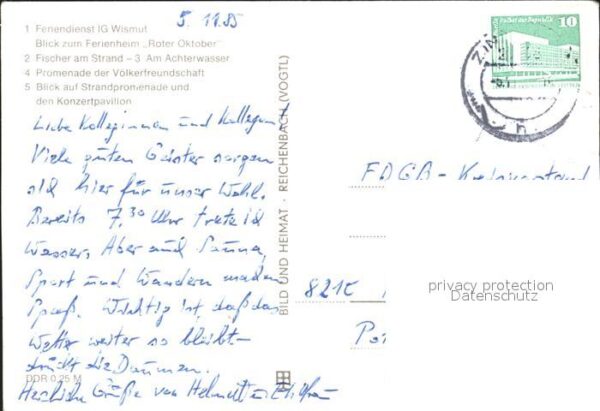 5. 11.85
1 Feriendienst IG Wismut
Blick zum Ferienheim „Roter Oktober"
2 Fischer am Strand – 3 Am Achterwasser
4 Promenade der Völkerfreundschaft
5 Blick auf Strandpromenade und
den Konzertpavillon
Palast der Republik 10
Liebe Kolleginnen und Kollegen!
Viele guten Geister sorgen
sich hier für unser Wohl.
Bereits 7.30 Uhr trete ich
Wasser. Aber auch Sauna,
Sport und Wandern machen
Spaß. Wichtig ist, daß das
Wetter weiter so bleibt –
drückt die Daumen.
Herzliche Grüße von Helmut
DDR 0,25 M
BILD UND HEIMAT · REICHENBACH (VOGTL)
FDGB - Kreisvorstand
8210
privacy protection
Datenschutz